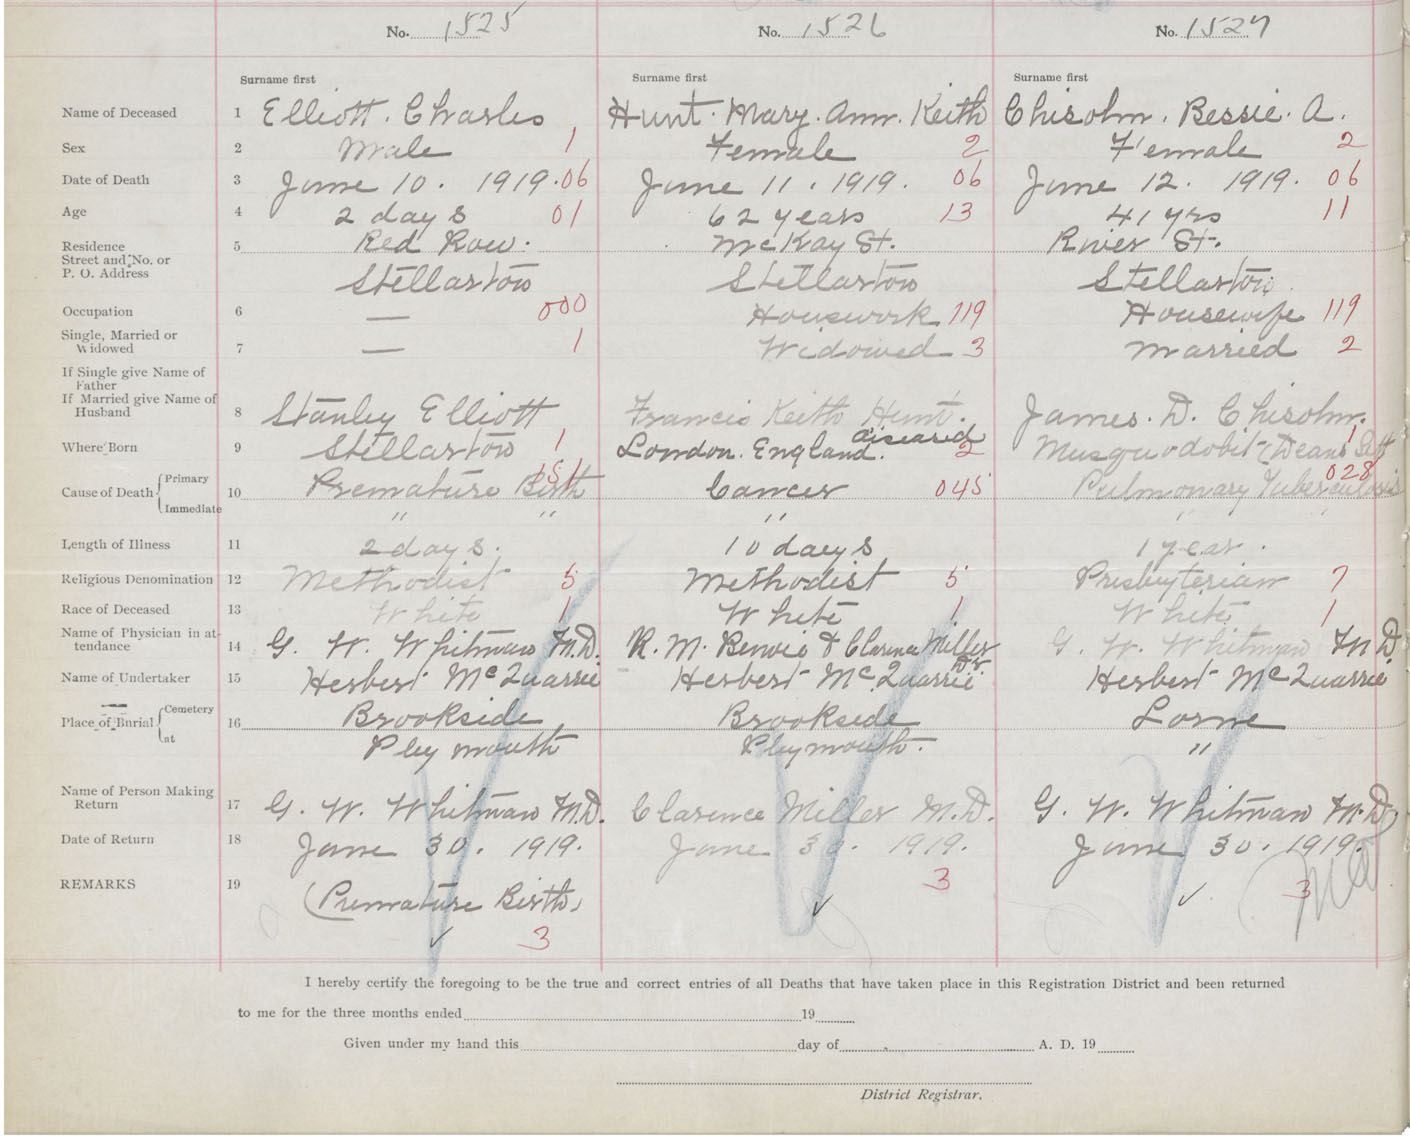 No. 1525 No. 1526 No. 1527
Surname first Surname first Surname first
Name of Deceased 1 Elliott. Charles Hunt. Mary. Ann. Keith Chisolm. Bessie. A.
Sex 2 Male 1 Female 2 Female 2
Date of Death 3 June 10. 1919. 06 June 11. 1919. 06 June 12. 1919. 06
Age 4 2 days 01 62 years 13 41 yrs 11
Residence 5 Red Row. McKay St. River St.
Street and No. or
P. O. Address Stellarton Stellarton Stellarton.
Occupation 6 — 000 Housework 119 Housewife 119
Single, Married or
Widowed 7 — 1 Widowed 3 Married 2
If Single give Name of
Father
If Married give Name of
Husband 8 Stanley Elliott Francis Keith Hunt. James. D. Chisolm.
diseased
Where Born 9 Stellarton 1 London. England. 2 Musquodobit (Deans Sett 1
Cause of Death Primary 10 Premature Birth 151 Cancer 045 Pulmonary Tuberculosis 028
Immediate " " " " "
Length of Illness 11 2 days. 10 days 1 year.
Religious Denomination 12 Methodist 5 Methodist 5 Presbyterian 7
Race of Deceased 13 White 1 White 1 White 1
Name of Physician in at-
tendance 14 G. W. Whitman M.D. R. M. Benvie & Clarence Miller Dr. G. W. Whitman M.D.
Name of Undertaker 15 Herbert McQuarrie Herbert McQuarrie Herbert McQuarrie
Place of Burial Cemetery 16 Brookside Brookside Lorne
at Pleymouth Pleymouth. "
Name of Person Making
Return 17 G. W. Whitman M.D. Clarence Miller M.D. G. W. Whitman M.D.
Date of Return 18 June 30. 1919. June 30. 1919. June 30. 1919.
REMARKS 19 (Premature Birth) 3 3 3
I hereby certify the foregoing to be the true and correct entries of all Deaths that have taken place in this Registration District and been returned
to me for the three months ended 19
Given under my hand this day of A. D. 19
District Registrar.